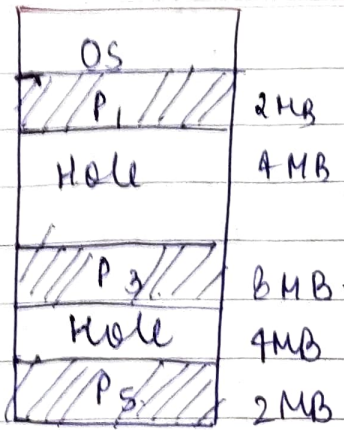 OS
P1 2MB
Hole 4MB
P3 8MB
Hole 4MB
P5 2MB